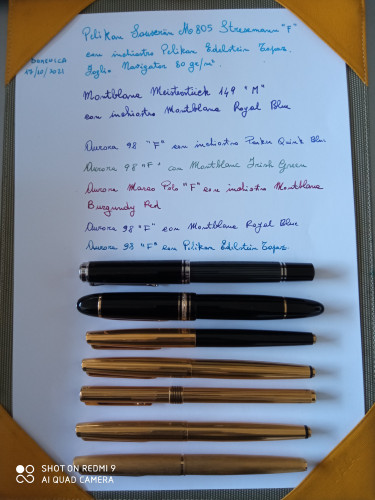 Pelikan Souverän M 805 Stresemann "F"
con inchiostro Pelikan Edelstein Topaz.
Foglio Navigator 80 gr/m².
DOMENICA
17/10/2021
Montblanc Meisterstück 149 "M"
con inchiostro Montblanc Royal Blue
Aurora 98 "F" con inchiostro Parker Quink Blue
Aurora 98 "F" con Montblanc Irish Green
Aurora Marco Polo "F" con inchiostro Montblanc
Burgundy Red
Aurora 98 "F" con Montblanc Royal Blue
Aurora 98 "F" con Pelikan Edelstein Topaz.
SHOT ON REDMI 9
AI QUAD CAMERA